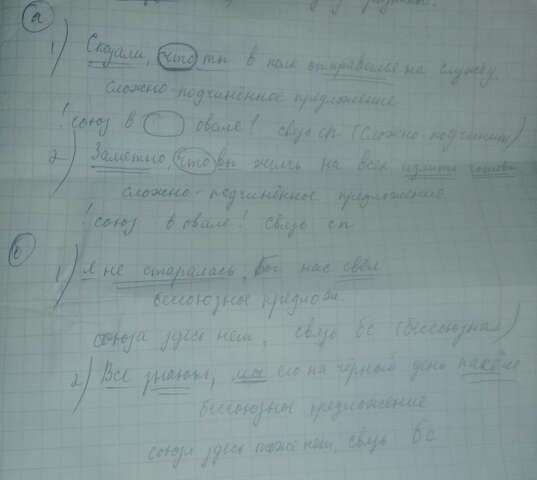 а)
1) Сказали, что ты в поле отправлен на службу.
сложно-подчинённое предложение
! союз в овале! связь сп (сложно-подчинит)
2) Заметно, что вы жизнь на всех
сложно-подчинённое предложение
! союз в овале! связь сп
б)
1) Я не старалась, Бог нас свёл
бессоюзное предлож.
союза здесь нет, связь бс (бессоюзная)
2) Все знают, мы его на чёрный день
бессоюзное предложение
союза здесь тоже нет, связь бс